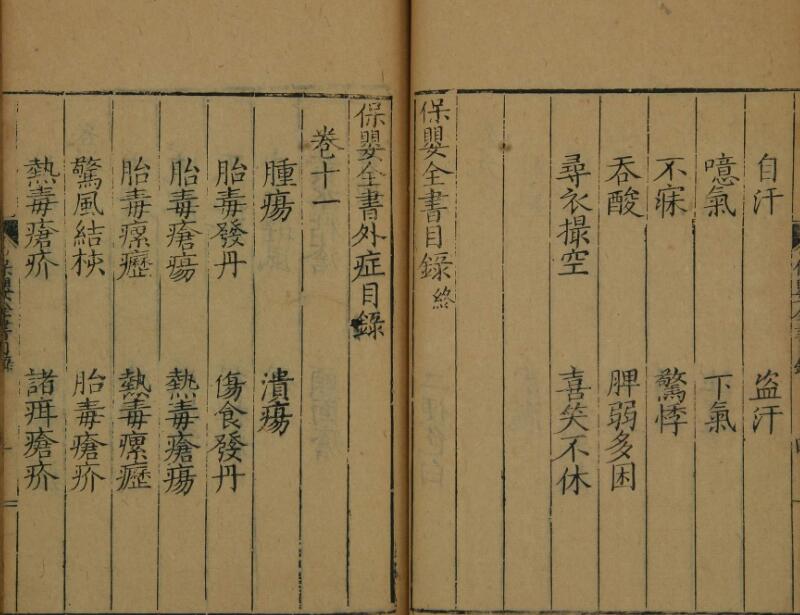 自汗 盗汗
噫氣 下氣
不寐 驚悸
吞酸 脾弱多困
尋衣撮空 喜笑不休
保嬰全書目錄 終
保嬰全書外症目錄
卷十一
腫瘍 潰瘍
胎毒發丹 傷食發丹
胎毒瘡瘍 熱毒瘡瘍
胎毒瘰癧 熱毒瘰癧
驚風結核 胎毒瘡疥
熱毒瘡疥 諸疳瘡疥
保嬰全書目錄